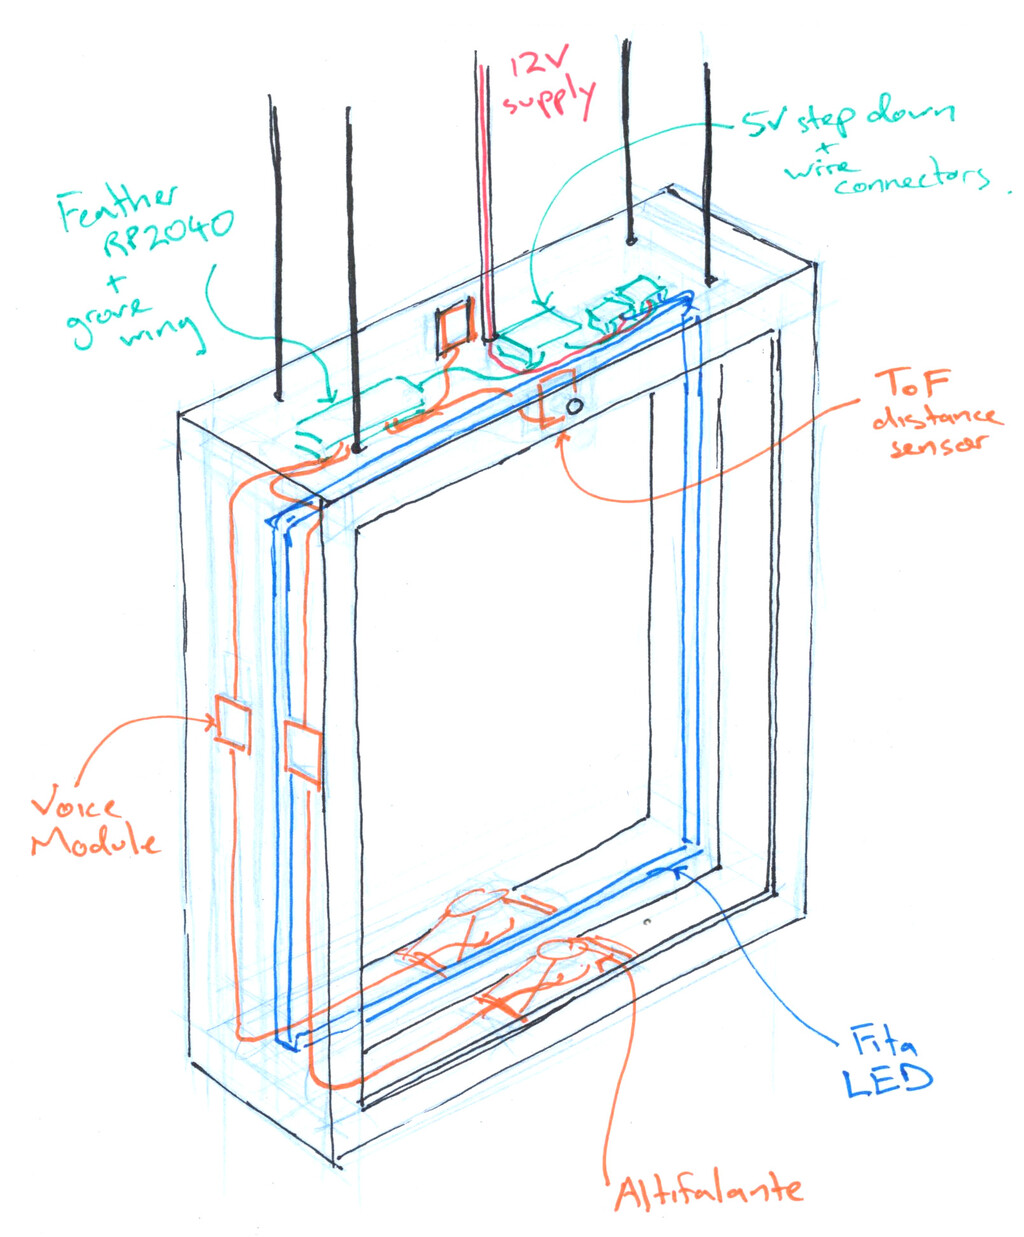 12V
supply
5V step down
+
wire
connectors.
Feather
RP2040
+
grove
wing
ToF
distance
sensor
Voice
Module
Fita
LED
Altifalante